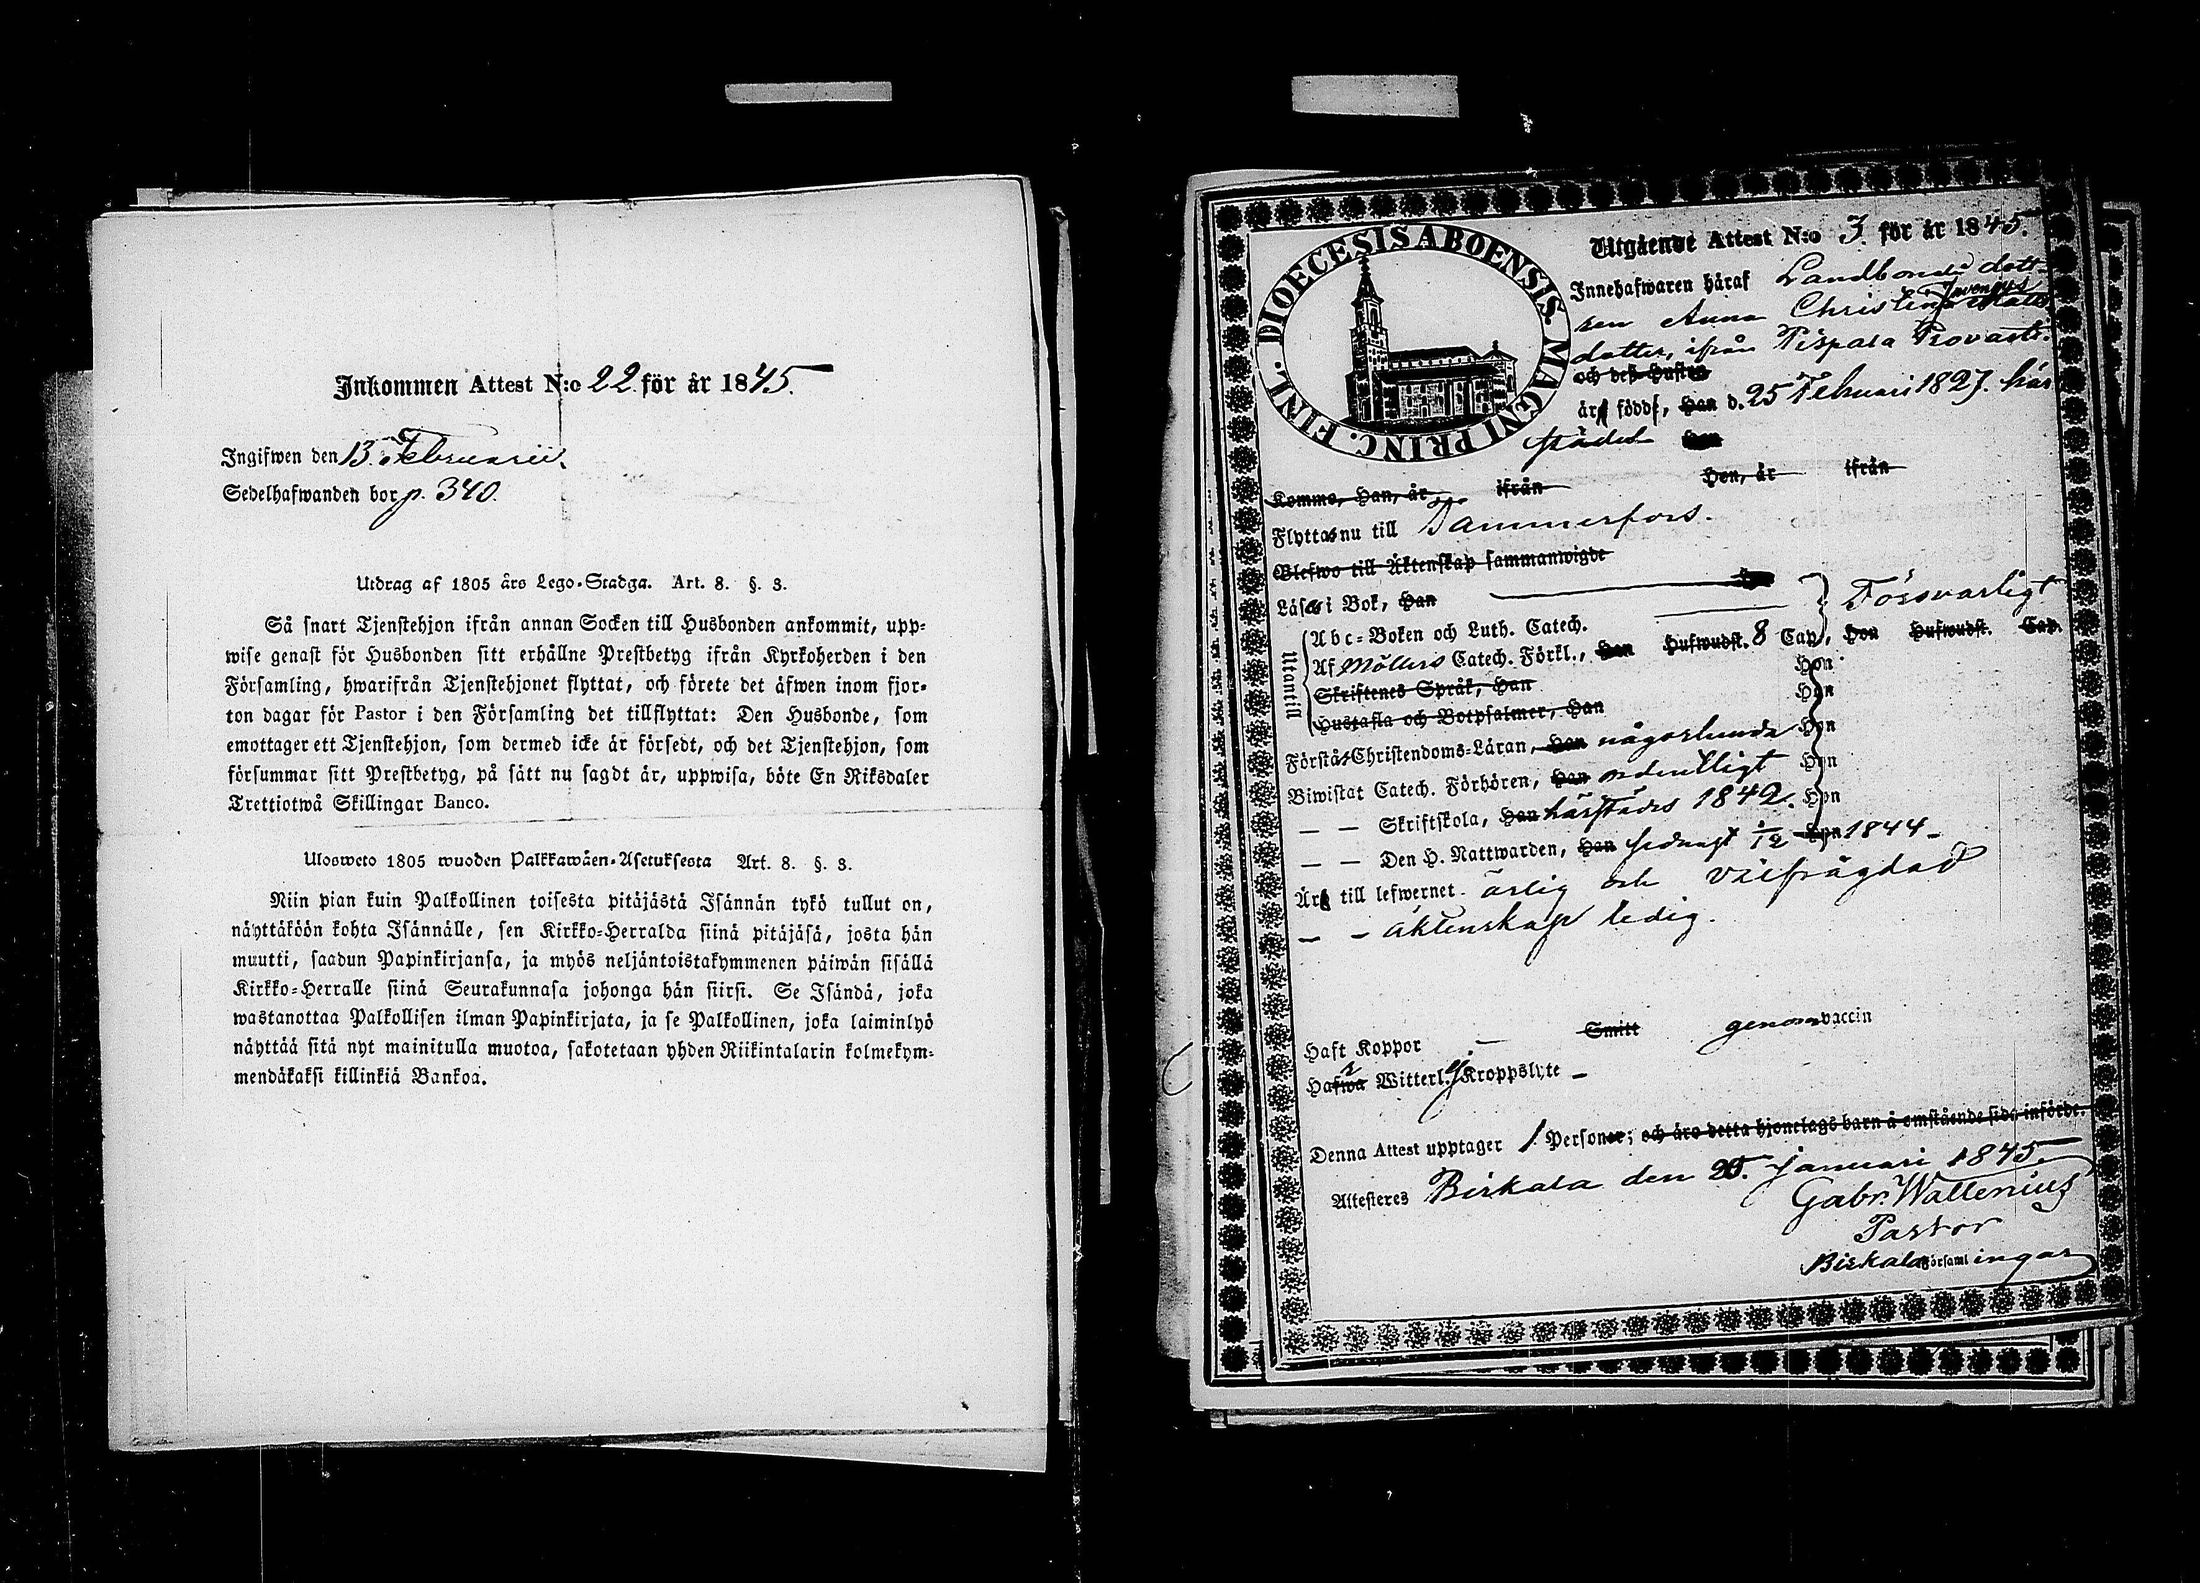 Inkommen Attest N:o 22 för år 1845.
Ingifwen den 13. Februarii.
Sedelhafwanden bor p. 340.
Utdrag af 1805 års Lego-Stadga. Art. 8. §. 3.
Så snart Tjenstehjon ifrån annan Socken till Husbonden ankommit, upp-
wise genast för Husbonden sitt erhållne Prestbetyg ifrån Kyrkoherden i den
Församling, hwarifrån Tjenstehjonet flyttat, och förete det äfwen inom fjor-
ton dagar för Pastor i den Församling det tillflyttat: Den Husbonde, som
emottager ett Tjenstehjon, som dermed icke är försedt, och det Tjenstehjon, som
försummar sitt Prestbetyg, på sätt nu sagdt är, uppwisa, böte En Riksdaler
Trettiotwå Skillingar Banco.
Ulosweto 1805 wuoden Palkkawäen-Asetuksesta Art. 8. §. 3.
Niin pian kuin Palkollinen toisesta pitäjästä Isännän tykö tullut on,
näyttäköön kohta Isännälle, sen Kirkko-Herralda siinä pitäjäsä, josta hän
muutti, saadun Papinkirjansa, ja myös neljäntoistakymmenen päiwän sisällä
Kirkko-Herralle siinä Seurakunnasa johonga hän siirsi. Se Isändä, joka
wastanottaa Palkollisen ilman Papinkirjata, ja se Palkollinen, joka laiminlyö
näyttää sitä nyt mainitulla muotoa, sakotetaan yhden Riikintalarin kolmekym-
mendäkaksi killinkiä Bankoa.
DIOECESIS ABOENSIS. MAGNI PRINC. FINL.
Utgående Attest N:o 3. för år 1845.
Innehafwaren häraf Landbonde dott-
ren Anna Christina
dotter, ifrån Pispala Provasti.
och deß Hustru
äro födde, Han d. 25 Februari 1827. här
städes Hon
Komme, Han, år ifrån Hon, år ifrån
Flyttas nu till Tammerfors.
Blefwo till Äktenskap sammanwigde
Läser i Bok, Han Hon Försvarligt
Utantill
Abc-Boken och Luth. Catech.
Af Möllers Catech. Förkl., Han Hufwudst. 8 Cap., Hon Hufwudst. Cap.
Skriftenes Språk, Han Hon
Hustafla och Botpsalmer, Han Hon
Förstår Christendoms-Läran, Han någorlunda Hon
Biwistat Catech. Förhören, Han ordentligt Hon
— — Skriftskola, Han härstädes 1842. Hon
— — Den H. Nattwarden, Han sednast 1/12 Hon 1844.
Äro till lefwernet ärlig och välfrägdad
— - äktenskap ledig.
Haft Koppor — Smitt genom vaccin
Hafwa Witterl. ej Kroppslyte —
Denna Attest upptager 1 Personer; och äro detta hjonelags barn å omstående sida införde.
Attesteres Birkala den 25. januari 1845.
Gabr. Wallenius
Pastor
Birkala Församlingar